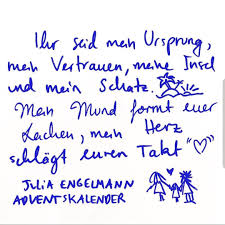 Ihr seid mein Ursprung,
mein Vertrauen, meine Insel
und mein Schatz.
Mein Mund formt euer
Lachen, mein Herz
schlägt euren Takt "♡"
JULIA ENGELMANN
ADVENTSKALENDER